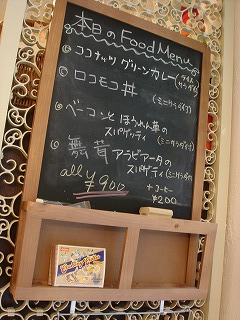 本日のFood Menu
ココナッツ グリーンカレー(ライス サラダ付)
ロコモコ丼
(ミニサラダ付)
ベーコンとほうれん草の
スパゲッティ(ミニサラダ付)
アラビアータの
スパゲティ(ミニサラダ付)
all ¥900
+コーヒー
¥200